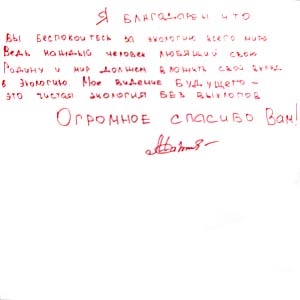 Я благодарен что
Вы беспокоитесь за экологию всего мира
Ведь каждый человек любящий свою
Родину и мир должен вложить свой вклад
в экологию Мое видение будущего –
это чистая экология без выхлопов
Огромное спасибо Вам!